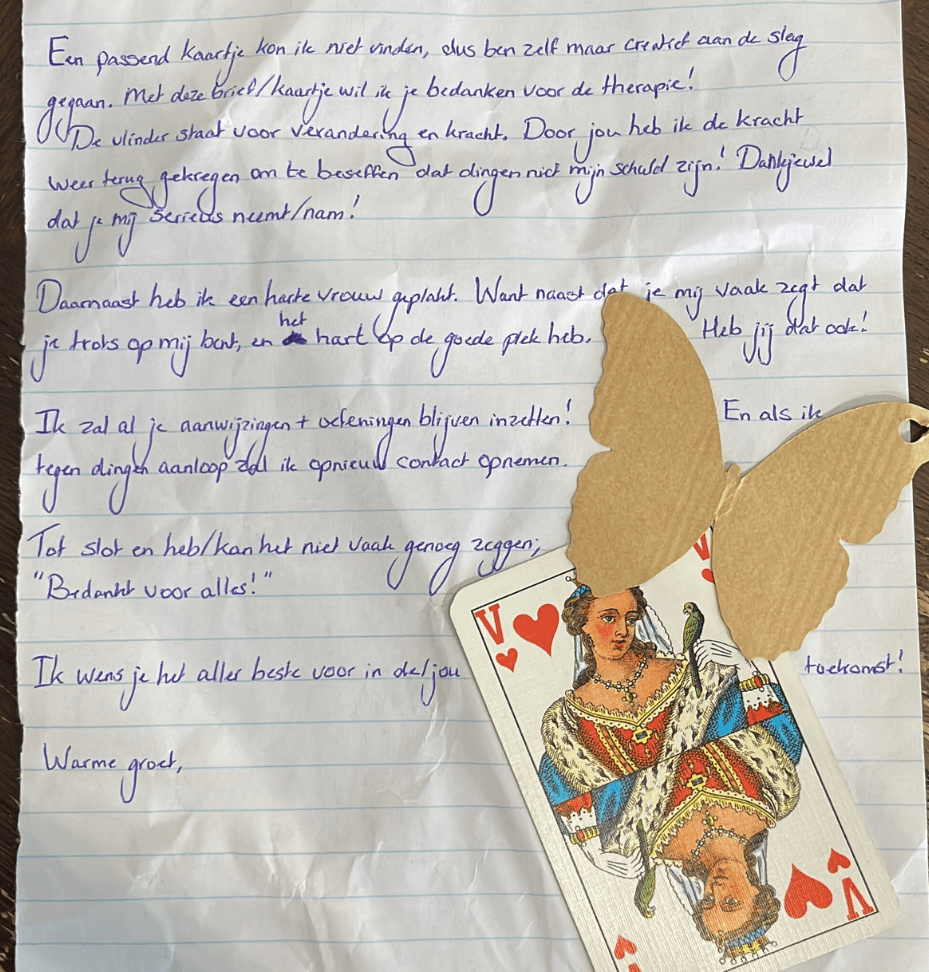 Een passend kaartje kon ik niet vinden, dus ben zelf maar creatief aan de slag
gegaan. Met deze brief/kaartje wil ik je bedanken voor de therapie!
De vlinder staat voor verandering en kracht. Door jou heb ik de kracht
weer terug gekregen om te beseffen dat dingen niet mijn schuld zijn! Dankjewel
dat je mij serieus neemt/nam!
Daarnaast heb ik een harte vrouw geplakt. Want naast dat je mij vaak zegt dat
je trots op mij bent, en het hart op de goede plek heb. Heb jij dat ook!
Ik zal al je aanwijzingen + oefeningen blijven inzetten! En als ik
tegen dingen aanloop zal ik opnieuw contact opnemen.
Tot slot en heb/kan het niet vaak genoeg zeggen;
"Bedankt voor alles!"
Ik wens je het aller beste voor in de/jou toekomst!
Warme groet,
V
V
V